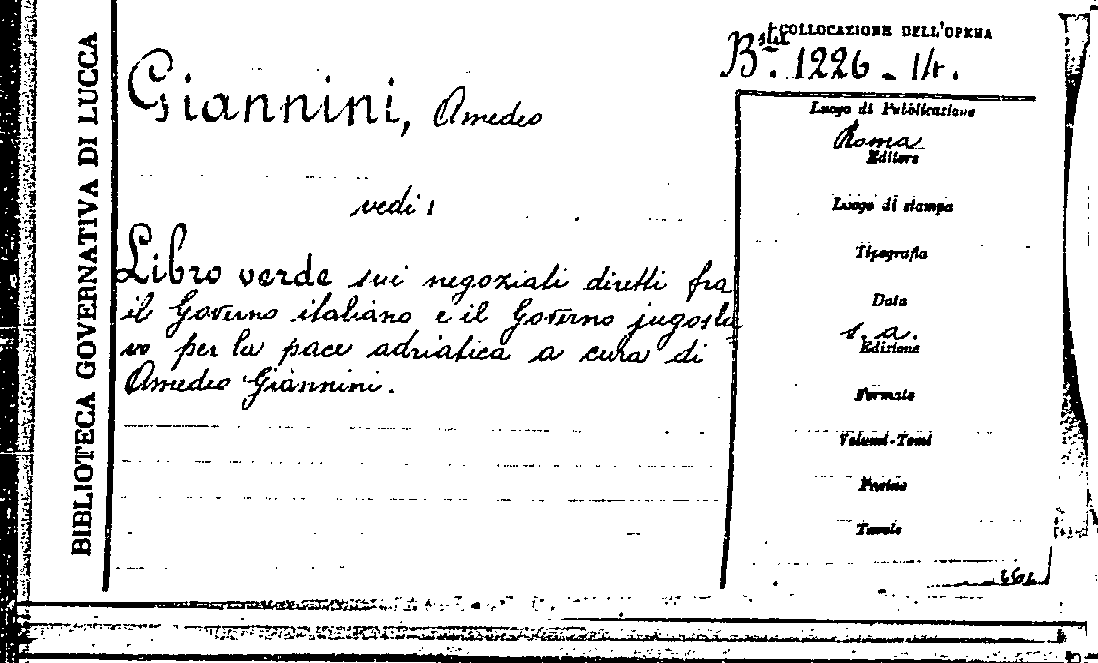 BIBLIOTECA GOVERNATIVA DI LUCCA
Giannini, Amedeo
vedi:
Libro verde sui negoziati diretti fra
il Governo italiano e il Governo jugosla
vo per la pace adriatica a cura di
Amedeo Giannini.
COLLOCAZIONE DELL'OPERA
Bsta. 1226 -
Luogo di Pubblicazione
Roma
Editore
Luogo di stampa
Tipografia
Data
s.a.
Edizione
Formato
Volumi-Tomi
Pagine
Tavole